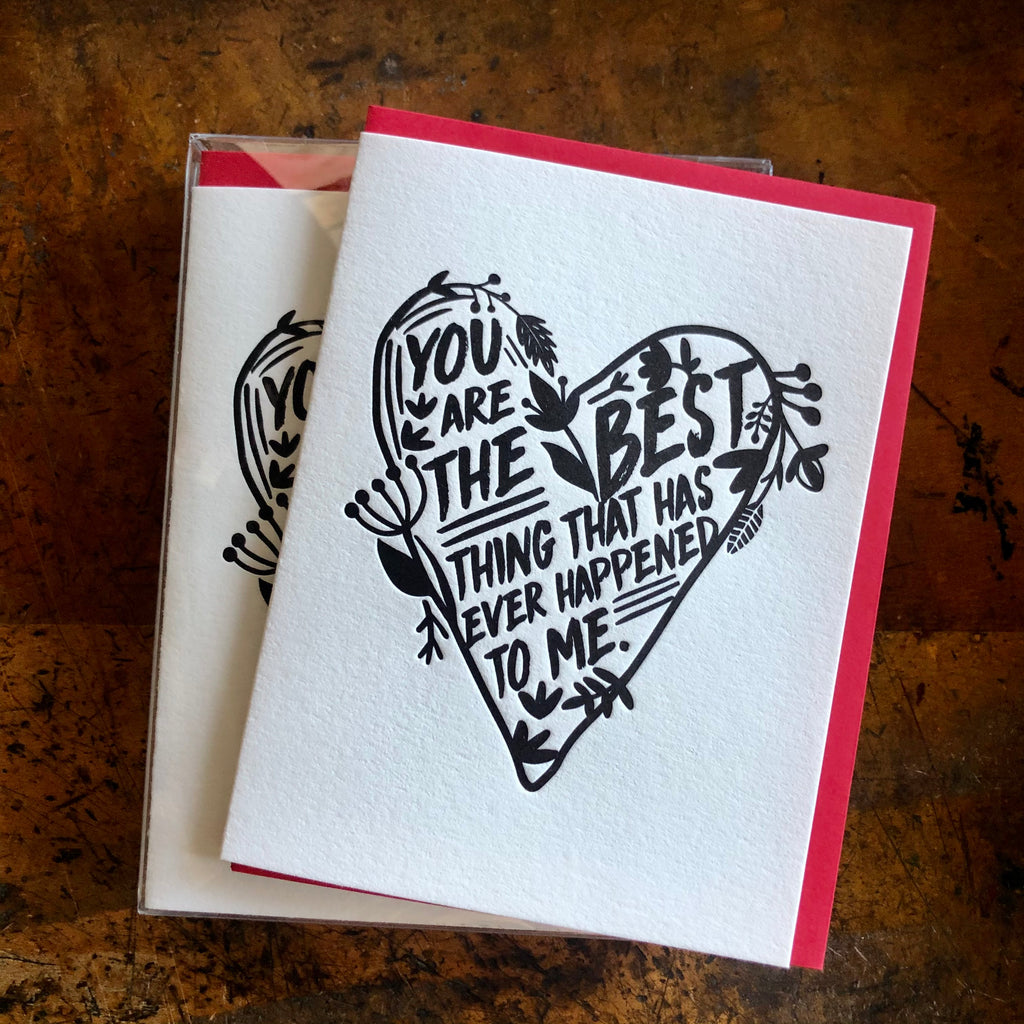 YOU
ARE
THE
BEST
THING THAT HAS
EVER HAPPENED
TO ME.
YO